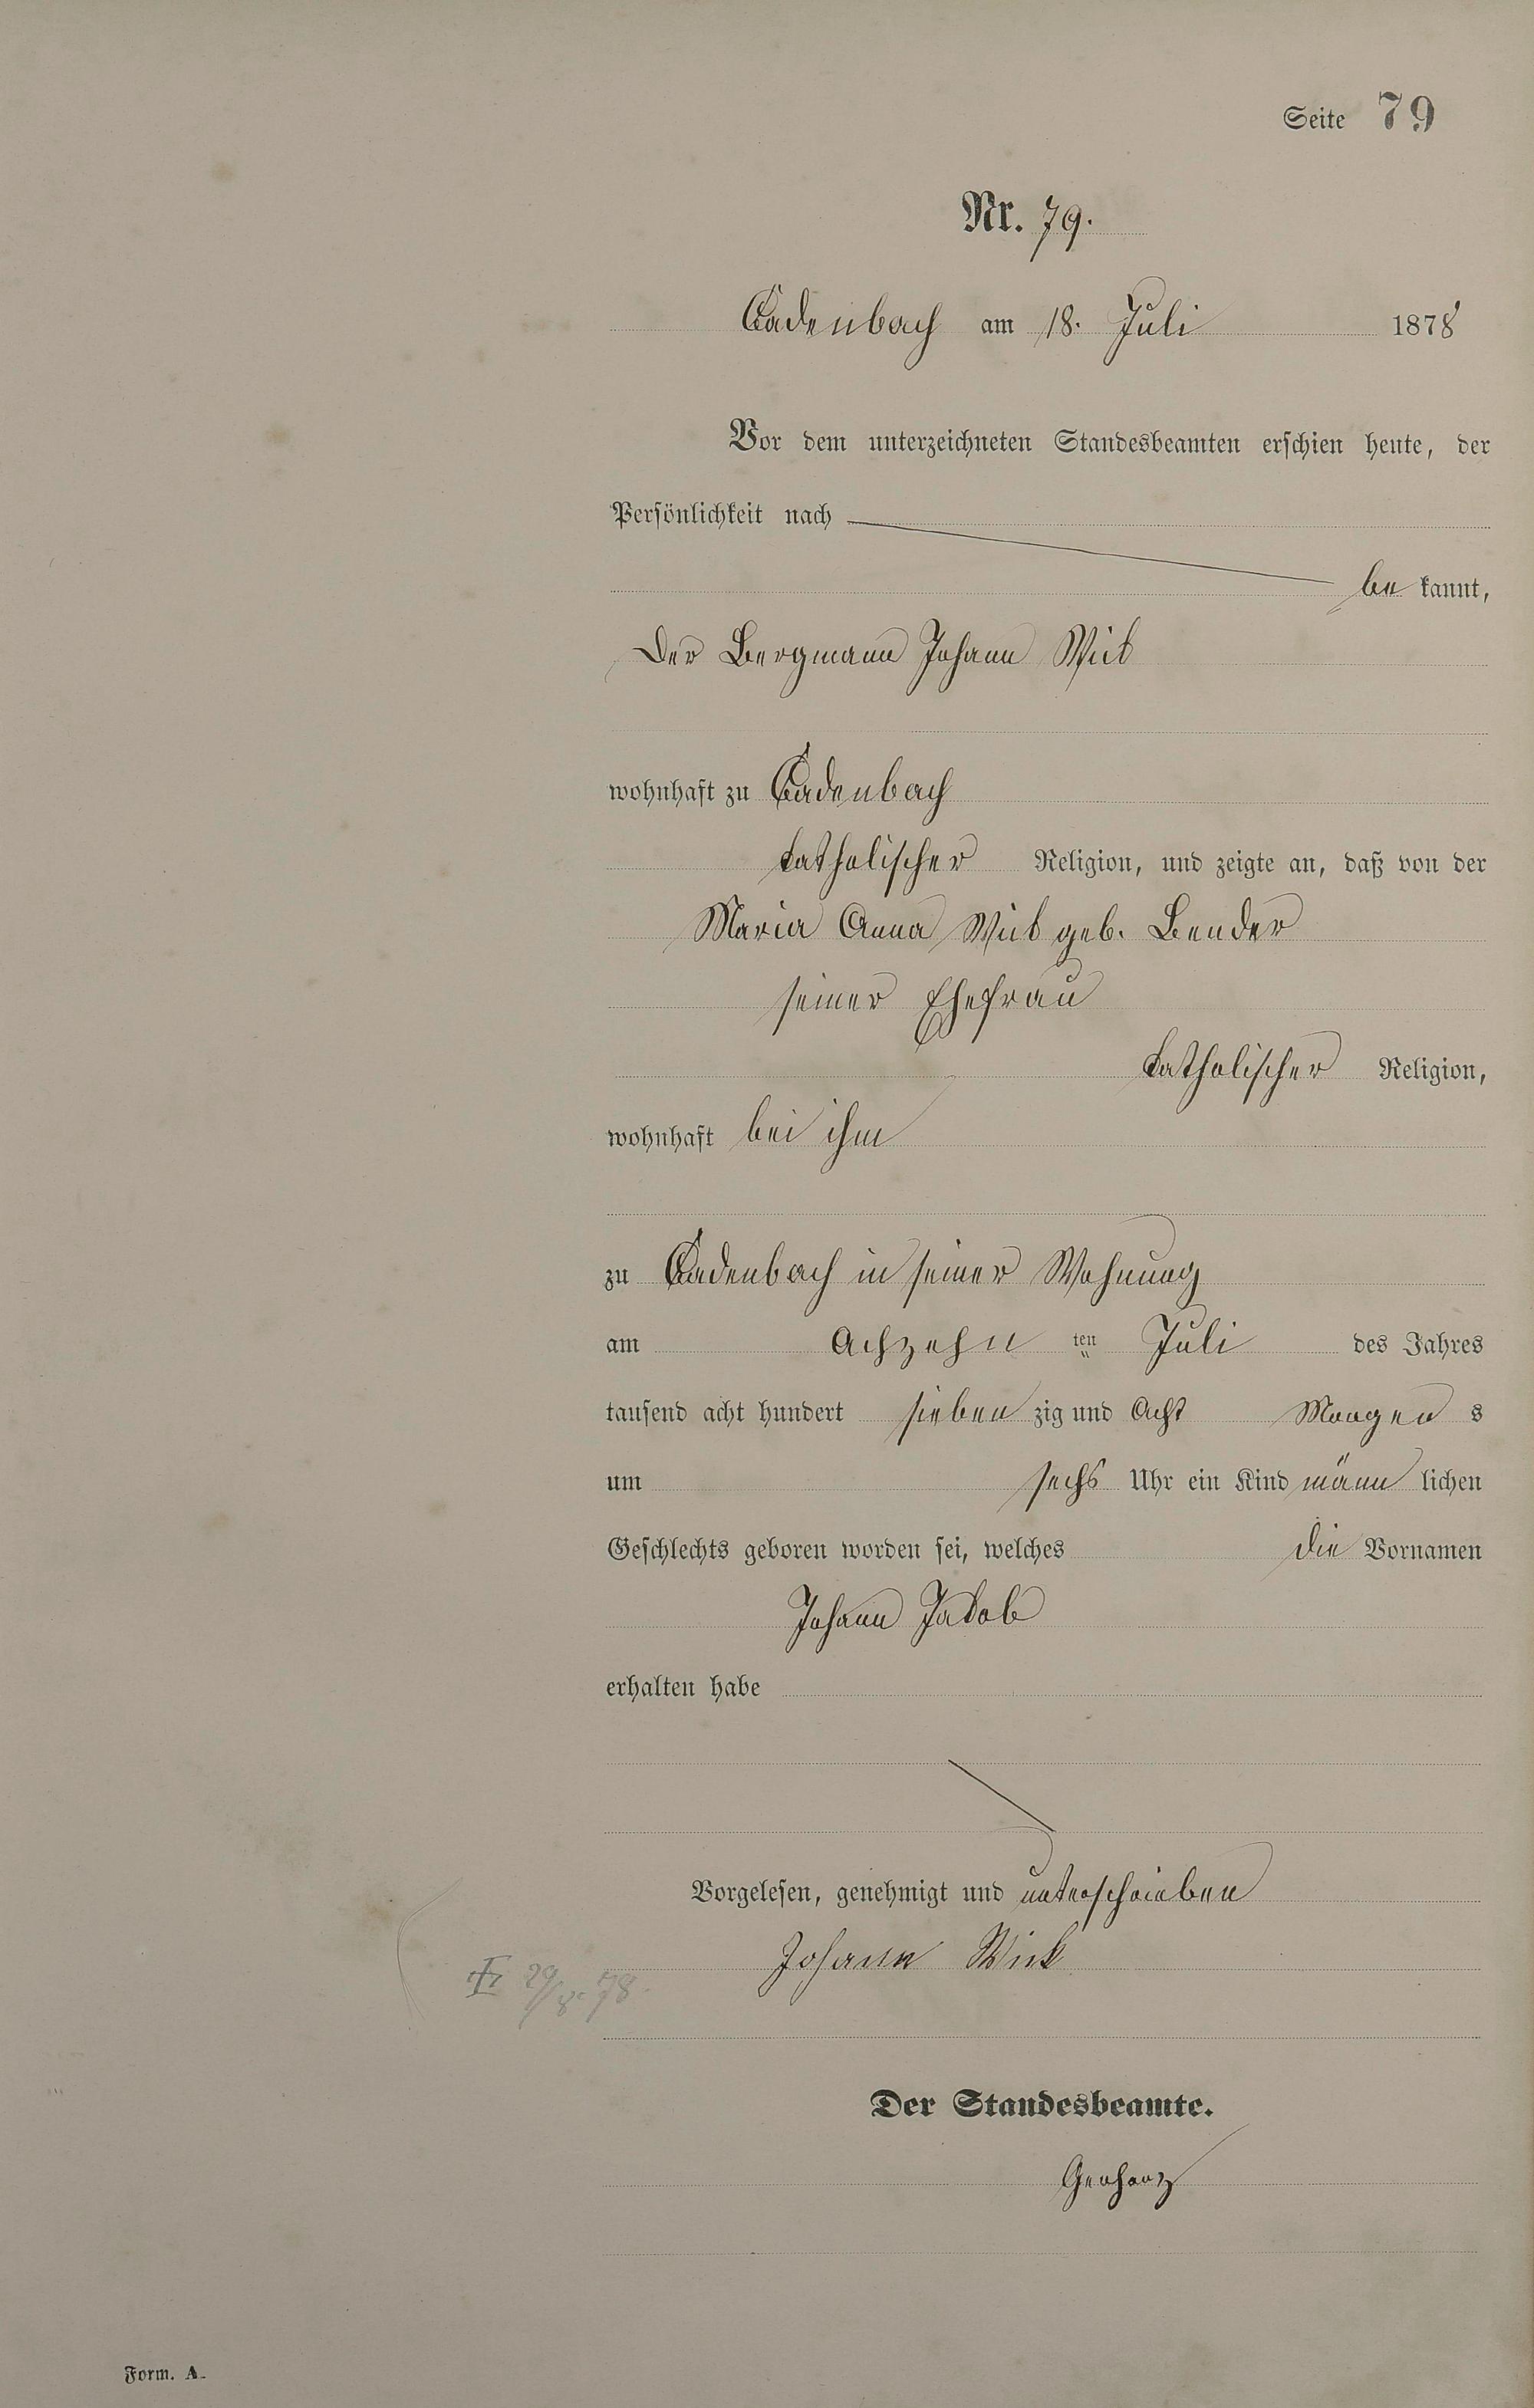 Seite 79
Nr. 79.
Cadenbach am 18. Juli 1878
Vor dem unterzeichneten Standesbeamten erschien heute, der
Persönlichkeit nach
be kannt,
Der Bergmann Johann Wick
wohnhaft zu Cadenbach
katholischer Religion, und zeigte an, daß von der
Maria Anna Wick geb. Bender
seiner Ehefrau
katholischer Religion,
wohnhaft bei ihm
zu Cadenbach in seiner Wohnung
am Achzehn ten Juli des Jahres
tausend acht hundert sieben zig und Acht Morgen s
um sechs Uhr ein Kind männ lichen
Geschlechts geboren worden sei, welches die Vornamen
Johann Jakob
erhalten habe
Vorgelesen, genehmigt und unterschrieben
Johann Wick
29/8. 78.
Der Standesbeamte.
Gerharz
Form. A.